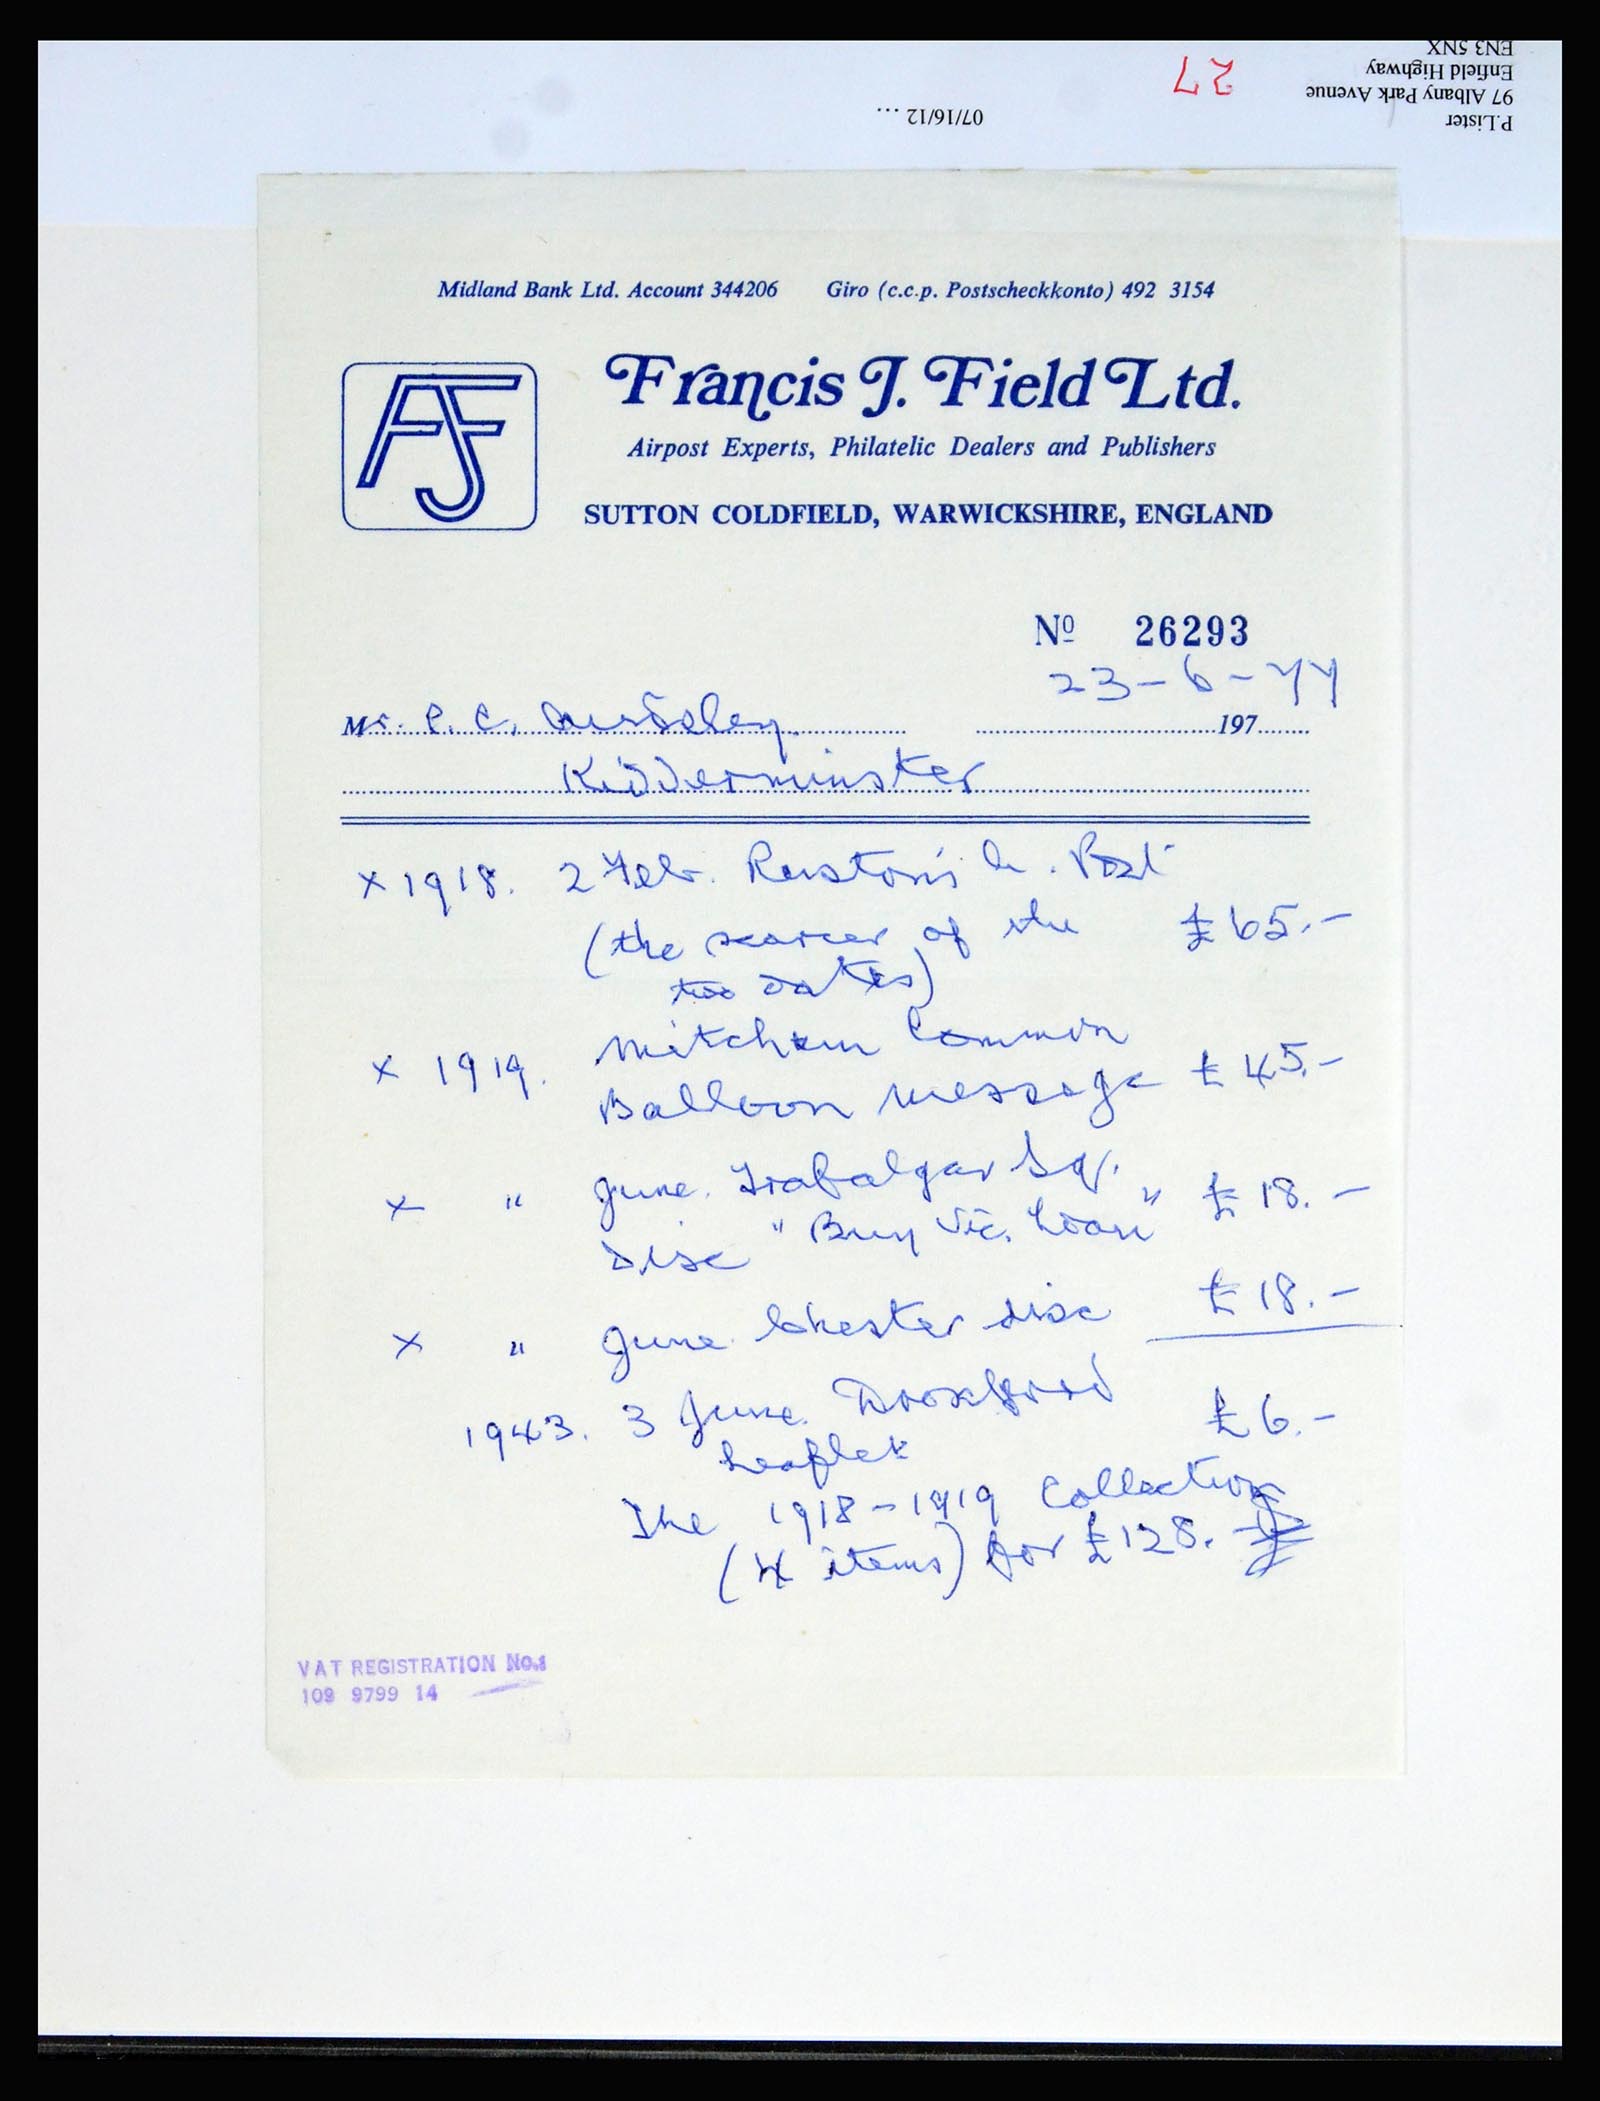 P.Lister
97 Albany Park Avenue
Enfield Highway
EN3 5NX
27
07/16/12 ...
Midland Bank Ltd. Account 344206 Giro (c.c.p. Postscheckkonto) 492 3154
AFJ
Francis J. Field Ltd.
Airpost Experts, Philatelic Dealers and Publishers
SUTTON COLDFIELD, WARWICKSHIRE, ENGLAND
No 26293
23-6-77
Mr. C. C. 197
Kidderminster
x 1918. 2 Febr. Ruston's Post
(the scarcer of the £65.-
two dates)
x 1919. Mitcham Common
Balloon message £45.-
x " June. Trafalgar Sq.
Disc "Buy Vic. Loan" £18.-
x " June. Chester disc £18.-
1943. 3 June. £6.-
Leaflet
The 1918-1919 Collection
(4 items) for £128.-
VAT REGISTRATION No.:
109 9799 14